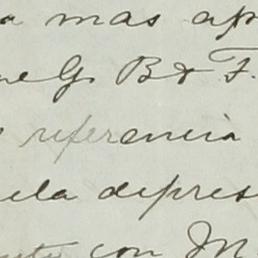 a mas ap
ue G. B & F.
referencia
ela depres
con M